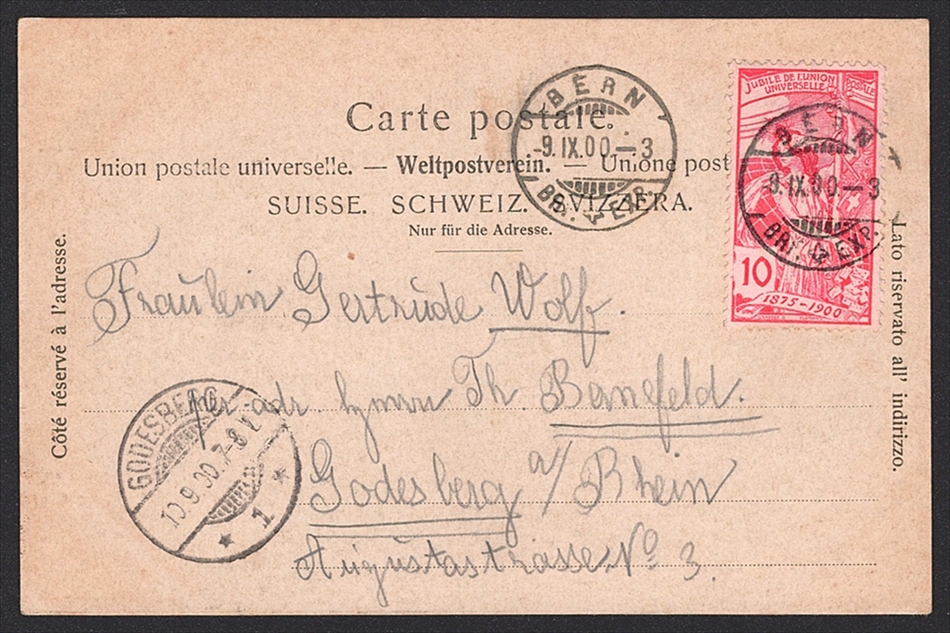 Carte postale.
Union postale universelle. — Weltpostverein. — Unione post
SUISSE. SCHWEIZ. SVIZZERA.
Nur für die Adresse.
Côté réservé à l'adresse.
Lato riservato all' indirizzo.
BERN
-9.IX.00.-3
BRF. EXP.
JUBILÉ DE L'UNION POSTALE
UNIVERSELLE
10
1875-1900
BERN
-9.IX.00-3
BRF. EXP.
Fräulein Gertrude Wolf.
per adr. Th.
Godesberg a/Rhein
Augustastrasse No 3.
GODESBERG
10.9.00.7-8V.
* 1 *